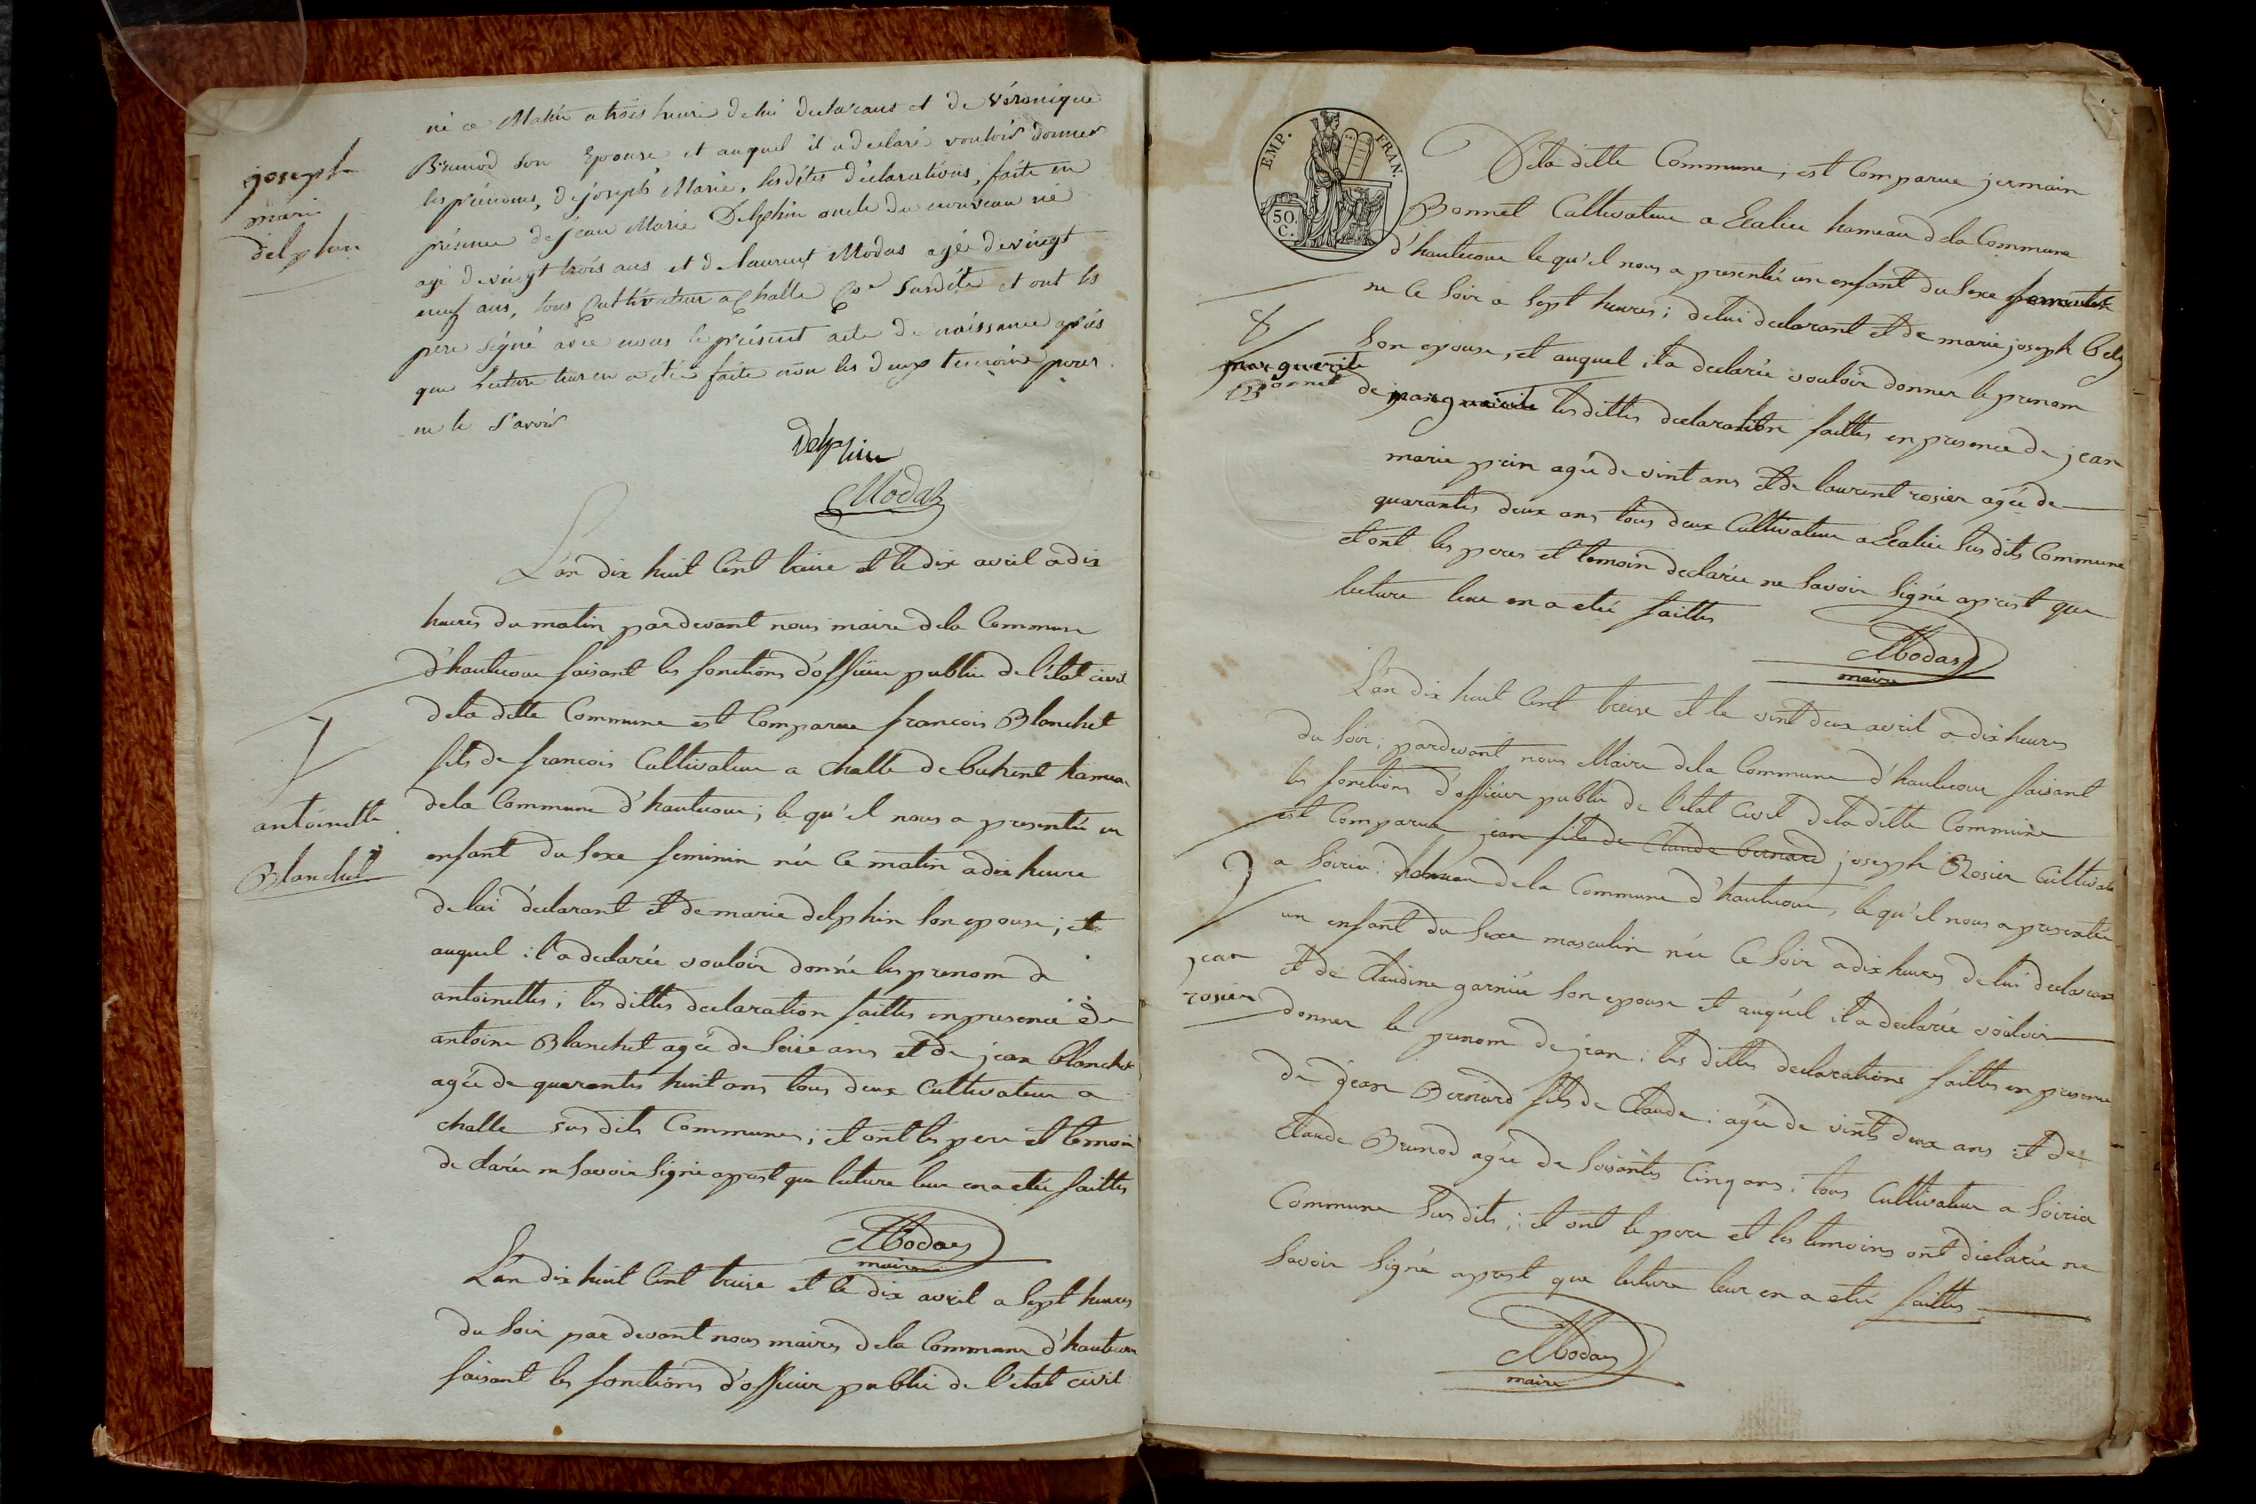 joseph
marie
delphin
né ce Matin a trois heure de lui declarant et de véronique
Brunod son Epouse et auquel il a declaré vouloir donner
les prénoms, de joseph Marie, lesdites déclarations, faite en
présence de jean Marie Delphin oncle du nouveau né
agé de vingt trois ans et de laurent Modas agé de vingt
neuf ans, tous Cultivateur a Challe Cne Susdite et ont les
pere signé avec nous le présent acte de naissance après
que lecture leur en a été faite non les deux temoins pour
ne le savoir
Delphin
Modas
L'an dix huit Cent traise et le dix avril a dix
heures du matin pardevant nous maire dela Commune
d'hautecour faisant les fonctions d'officier public de l'état civil
dela ditte Commune est Comparue francois Blanchet
fils de francois Cultivateur a Challe de hameau
dela Commune d'hautecour; le qu'il nous a presentée un
enfant du Sexe feminin née Ce matin a dix heure
de lui déclarant et de marie delphin Son epouse; et
auquel il a declarée vouloir donné les prenom de
antoinettes; les dittes declaration faittes en presence de
antoine Blanchet agée de Seise ans et de jean blanchet
agée de quarantes huit ans tous deux Cultivateur a
challe sus dits Communes; et ont les pere et temoin
de clarée ne Savoir Signé aprest que lecture leur en a etée faittes
7
antoinette
Blanchet
Modas
maire
L'an dix huit Cent traise et le dix avril a Sept heures
du Soir par devant nous maires dela Commune d'hautecour
faisant les fonctions d'officier public de l'etat civil
EMP. FRAN.
50.
C.
Dela ditte Commune; est Comparue jermain
Bonnet Cultivateur a hameau dela Commune
d'hautecour le qu'il nous a presentée un enfant du Sexe
ne Ce Soir a Sept heures; delui declarant et de marie joseph
Son epouse, et auquel il a declarée vouloir donner le prenom
de marguerite les dittes declaration faittes en presence de jean
marie agée de vint ans et de laurent rosier agée de
quarantes deux ans tous deux Cultivateur a Sus dits Commune
et ont les peres et temoin declarée ne Savoir Signé aprest que
lecture leur en a etée faittes
8
marguerite
Bonnet
Modas
maire
L'an dix huit Cent treise et le vint deux avril a dix heures
du Soir; pardevant nous Maire dela Commune d'hautecour faisant
les fonctions d'officier public de l'etat Civil dela ditte Commune
est Comparue jean fils de Claude bernard joseph Rosier Cultivate
a Soiria: hameau dela Commune d'hautecour, le qu'il nous a presentée
un enfant du Sexe masculin née Ce Soir a dix heures de lui declarant
et de Claudine garnier Son epouse et auquel il a declarée vouloir
donner le prenom de jean; les dittes declarations faittes en presence
de jean Bernard fils de Claude: agée de vints deux ans et de
Claude Brunod agée de Soisantes Cinq ans: tous Cultivateur a Soiria
Commune Sus dits; et ont le pere et les temoins ont déclarée ne
Savoir Signé aprest que lecture leur en a etée faittes
9
jean
rosier
Modas
maire